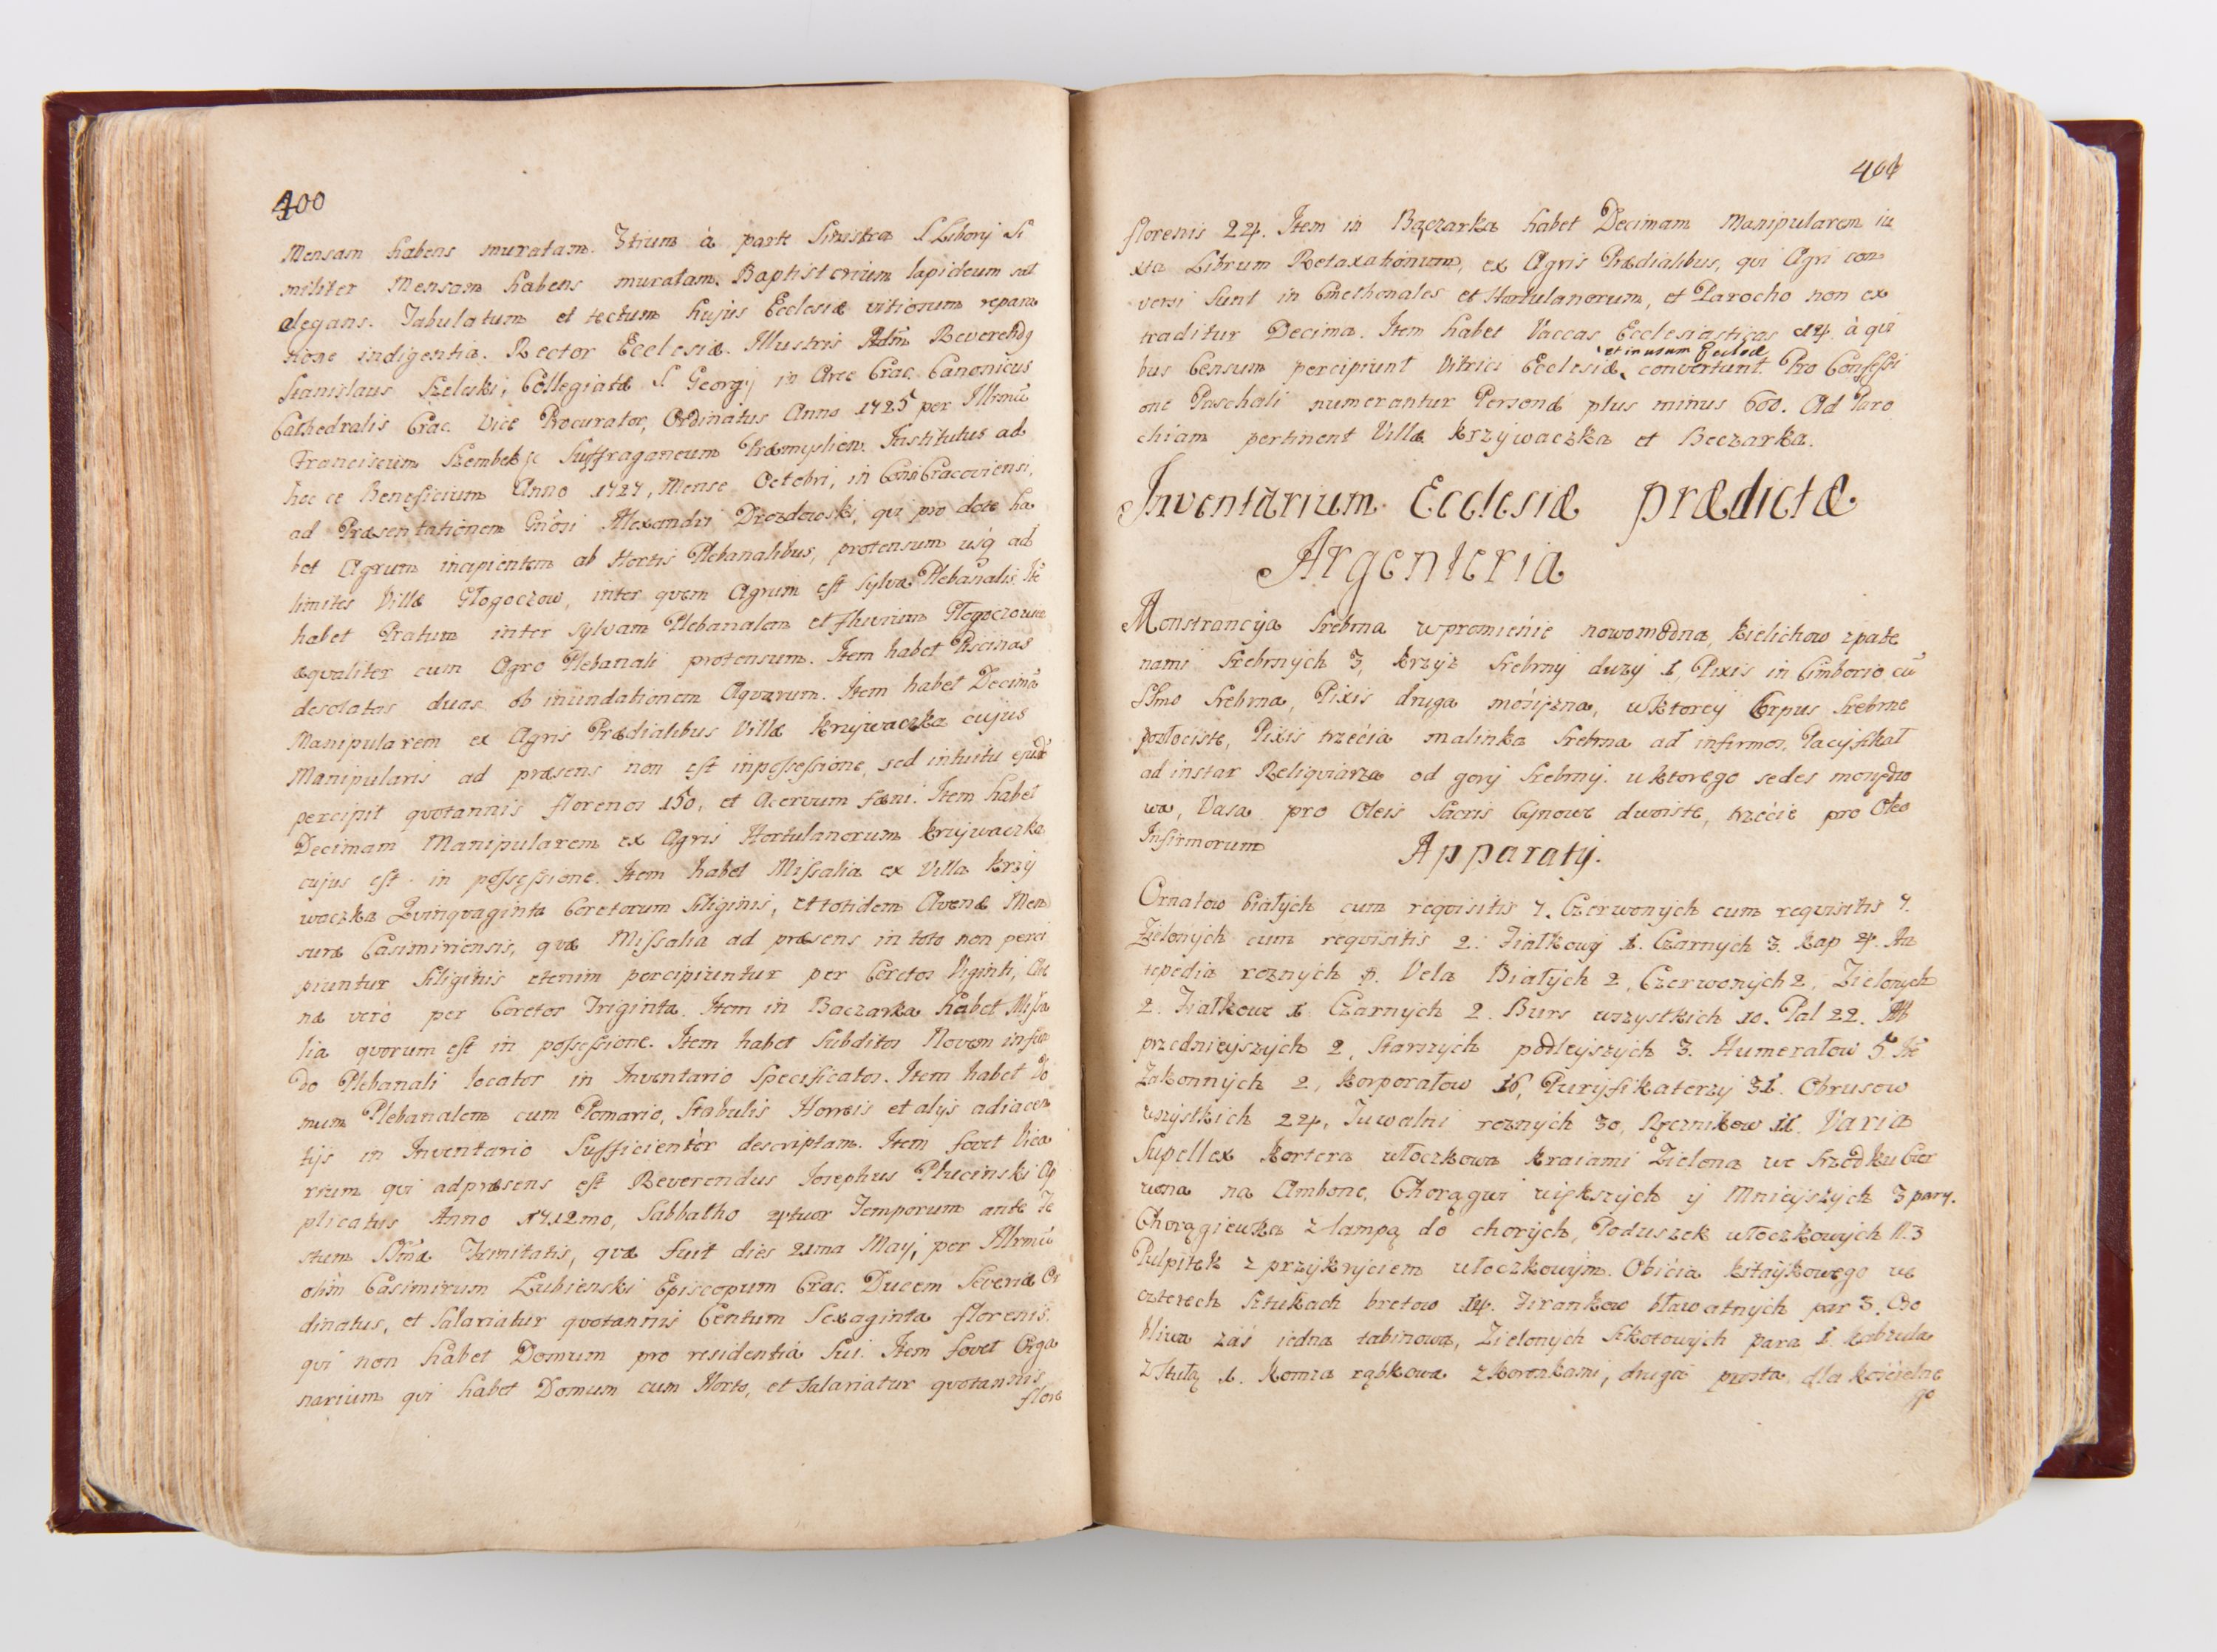 400
Mensam habens muratam. 3tium à parte Sinistra S. Liborij Si
militer Mensam habens muratam. Baptisterium lapideum sat
elegans. Tabulatum et tectum hujus Ecclesiæ vitiosum repara
tione indigentia. Rector Ecclesiæ. Illustris Adm Reverendq
Stanislaus Szeluki, Collegiatæ S. Georgij in Arce Crac. Canonicus
Cathedralis Crac. Vice Procurator, Ordinatus Anno 1725 per Illrmū
Franciscum Szembek Suffraganeum Præmyslien. Institutus ad
hoc ce Beneficium Anno 1727, Mense Octobri, in Cons Cracoviensi,
ad Præsentationem Gnosi Alexandri Drozdowski, qui pro dote ha
bet Agrum incipientem ab Hortis Plebanalibus, protensum usq ad
limites Villæ Głogoczow, inter quem Agrum est sylva Plebanalis. Itē
habet Pratum inter sylvam Plebanalem et fluvium
æqvaliter cum Agro Plebanali protensum. Item habet Piscinas
desolatas duas ob inundationem Aqvarum. Item habet Decimā
Manipularem ex Agris Prædialibus Villæ Krzywaczka cujus
Manipularis ad præsens non est in possessione, sed intuitu ejusd
percipit quotannis florenos 150, et Acervum fæni. Item habet
Decimam Manipularem ex Agris Hortulanorum Krzywaczka
cujus est in possessione. Item habet Missalia ex Villa Krzy
waczka Qvinqvaginta Coretorum Siliginis, et totidem Avenæ Men
suræ Casimiriensis, qvæ Missalia ad præsens in toto non perci
piuntur Siliginis etenim percipiuntur per Coretos Viginti, Ave
næ verò per Coretos Triginta. Item in Baczarka habet Missa
lia qvorum est in possessione. Item habet Subditos Novem in fun
do Plebanali locatos in Inventario Specificatos. Item habet Do
mum Plebanalem cum Pomario, Stabulis Horreis et alijs adiacen
tijs in Inventario Sufficientèr descriptam. Item fovet Vica
rium qui ad præsens est Reverendus Josephus Plucinski Ap
plicatus Anno 1712mo, Sabbatho 4tuor Temporum ante Fe
stum SSmæ Trinitatis, quæ fuit dies 21ma Maij, per Illrmū
olim Casimirum Łubienski Episcopum Crac. Ducem Severiæ Or
dinatus, et Salariatur quotannis Centum Sexaginta florenis.
qui non habet Domum pro residentia Sui. Item fovet Orga
narium qui habet Domum cum Horto, et Salariatur quotannis
flore
401
florenis 24. Item in Bączarka habet Decimam Manipularem iu
xta Librum Retaxationum, ex Agris Prædialibus, qui Agri con
versi sunt in Cmethonales et Hortulanorum, et Parocho non ex
traditur Decima. Item habet Vaccas Ecclesiasticas 14 à qui
et in usum Ecclesiæ
bus Censum percipiunt Vitrici Ecclesiæ convertunt. Pro Confessi
one Paschali numerantur Personæ plus minus 600. Ad Paro
chiam pertinent Villæ Krzywaczka et Beczarka.
Inventarium Ecclesiæ prædictæ
Argenteria
Monstrancya Srebrna w promienie nowomodna, kielichow z pate
nami Srebrnych 3, krzyz Srebrny duzy 1, Pixis in Cimborio cū
SSmo Srebrna, Pixis druga mosiężna, w ktorey Corpus Srebrne
pozłociste, Pixis trzecia malinka Srebrna ad infirmos, Pacyfikał
ad instar Reliqviarza od gory Srebrny. u ktorego sedes mosiędzo
wa, Vasa pro Oleis Sacris Cynowe dwoiste, trzecie pro Oleo
Infirmorum
Apparaty.
Ornatow białych cum reqvisitis 7. Czerwonych cum reqvisitis 7.
Zielonych cum reqvisitis 2. Fiałkowy 1. Czarnych 3. kap 4. An
tepedia roznych Vela Białych 2, Czerwonych 2, Zielonych
2. Fiałkowe 1 Czarnych 2. Burs wszystkich 10. Pal 22. Alb
przednieyszych 2, starszych podleyszych 3. Humerałow 5 Itē
Zakonnych 2, korporałow 16, Puryfikaterzy 31. Obrusow
wszystkich 24, Tuwalni roznych 30, Ręcznikow 11. Varia
Supellex kortera włoczkowa kraiami Zielona we Srzodku Czer
wona na Ambone, Chorągwi większych y Mnieyszych 3 pary.
Chorągiewka z lampą do chorych, Poduszek włoczkowych N. 3
Pulpitek z przykryciem włoczkowym. Obicia kitaykowego we
czterech Sztukach bretow 14. Firankow bławatnych par 3. Odo
bliwa zas iedna tabinowa, Zielonych Szkotowych para 1. kabzula
z Stułą 1. Komza rąbkowa z koronkami, druga prosta, dla koscielne
go